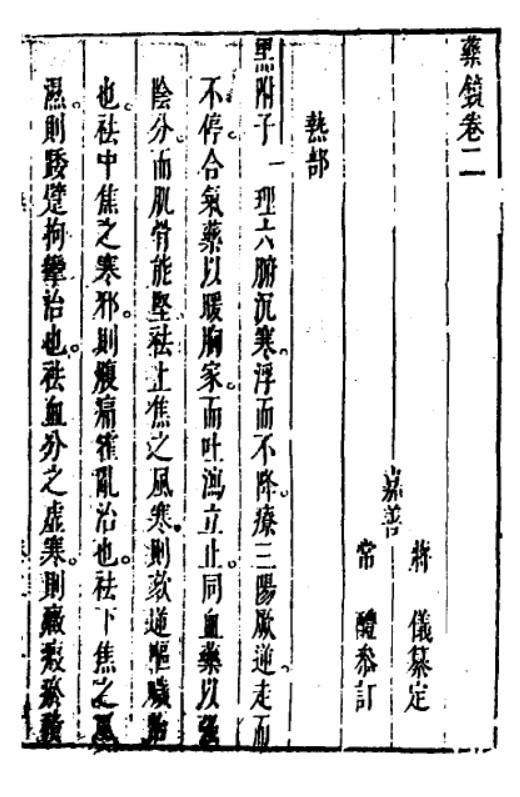 藥鏡卷二
嘉善
蔣儀纂定
常醴叅訂
熱部
黑附子一理六腑沉寒。浮而不降。療三陽厥逆。走而
不停。合氣藥以暖胸家。而吐瀉立止。同血藥以
陰分。而肌骨能堅。祛上焦之風寒。則欬逆
也。祛中焦之寒邪。則腹痛霍亂治也。祛下焦之
濕則踒躄拘攣治也。祛血分之虛寒。則癥瘕